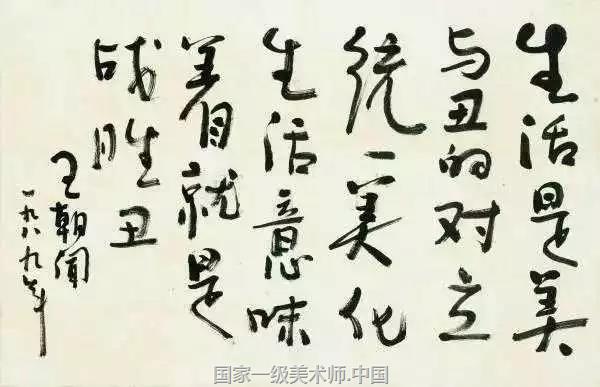 生活是美
与丑的对立
统一美化
生活意味
着就是
战胜丑
王朝闻
一九八九年
国家一级美术师.中国